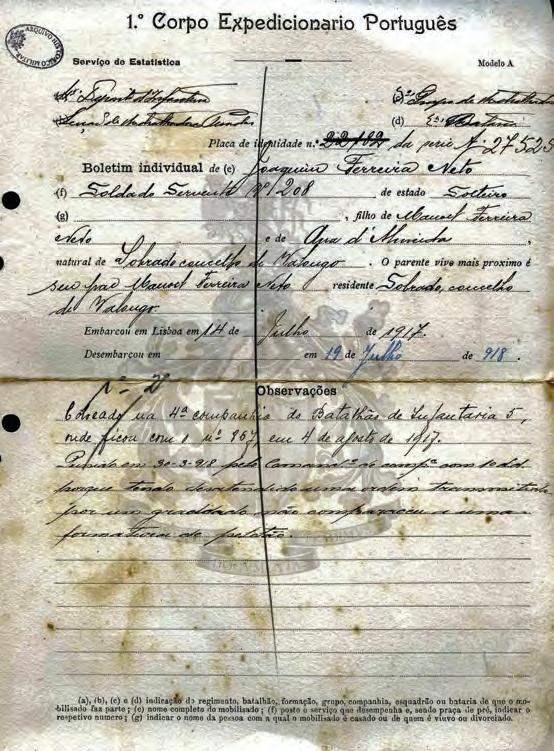 ARQUIVO HISTORICO MILITAR
1.º Corpo Expedicionario Português
Serviço de Estatistica
Modelo A
(d)
Placa de identidade n.º 22702 da serie N.º 27523
Boletim individual de (e) Joaquim Ferreira Neto
(f) Soldado Servente Nº 1208 de estado Solteiro
(g) , filho de Manoel Ferreira
Neto e de Ana d'Almeida ,
natural de Sobrado concelho de Valongo . O parente vivo mais proximo é
seu pai Manoel Ferreira Neto residente Sobrado, concelho
de Valongo.
Embarcou em Lisboa em 14 de Julho de 1917.
Desembarcou em em 19 de Julho de 918.
Observações
Colocado na 4ª companhia do Batalhão de Infantaria 5,
onde ficou com o nº 957 em 4 de agosto de 1917.
Punido em 30-3-918 pelo Comand.te da comp.ª com 10 d.d.
porque tendo desatendido uma ordem transmitida
por um graduado não compareceu a uma
formatura do pelotão.
(a), (b), (c) e (d) indicação do regimento, batalhão, formação, grupo, companhia, esquadrão ou bataria de que o mo-
bilisado faz parte; (e) nome completo do mobilisado; (f) posto e serviço que desempenha e, sendo praça de pré, indicar o
respetivo numero; (g) indicar o nome da pessoa com a qual o mobilisado é casado ou de quem é viuvo ou divorciado.